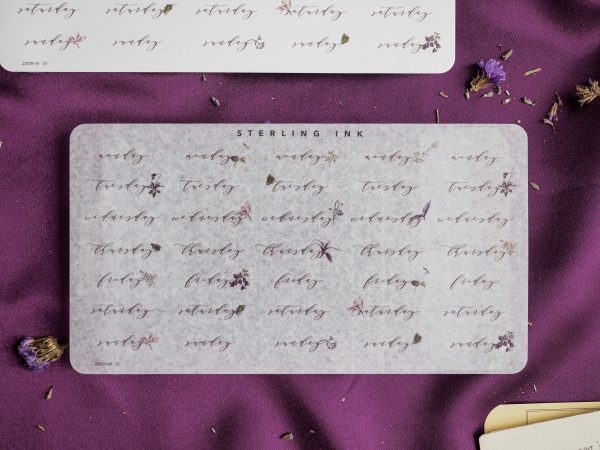 saturday saturday saturday saturday saturday
sunday sunday sunday sunday sunday
2309-W 01
STERLING INK
monday monday monday monday monday
tuesday tuesday tuesday tuesday tuesday
wednesday wednesday wednesday wednesday wednesday
thursday thursday thursday thursday thursday
friday friday friday friday friday
saturday saturday saturday saturday saturday
sunday sunday sunday sunday sunday